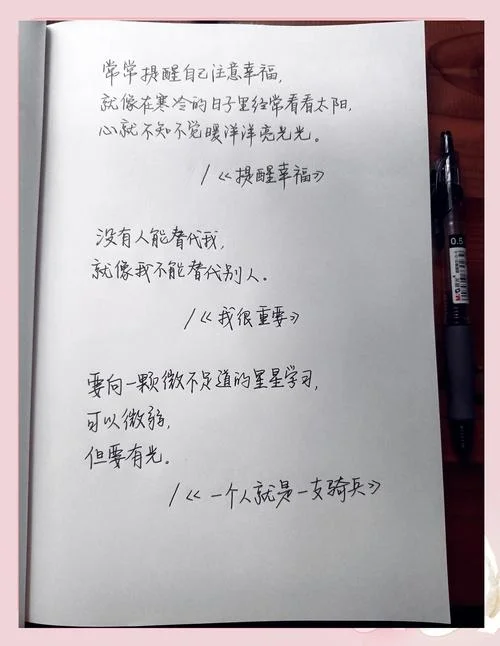 常常提醒自己注意幸福，
就像在寒冷的日子里经常看看太阳，
心就不知不觉暖洋洋亮光光。
/《提醒幸福》
没有人能替代我，
就像我不能替代别人.
/《我很重要》
要向一颗微不足道的星星学习，
可以微弱，
但要有光。
/《一个人就是一支骑兵》
0.5
M&G